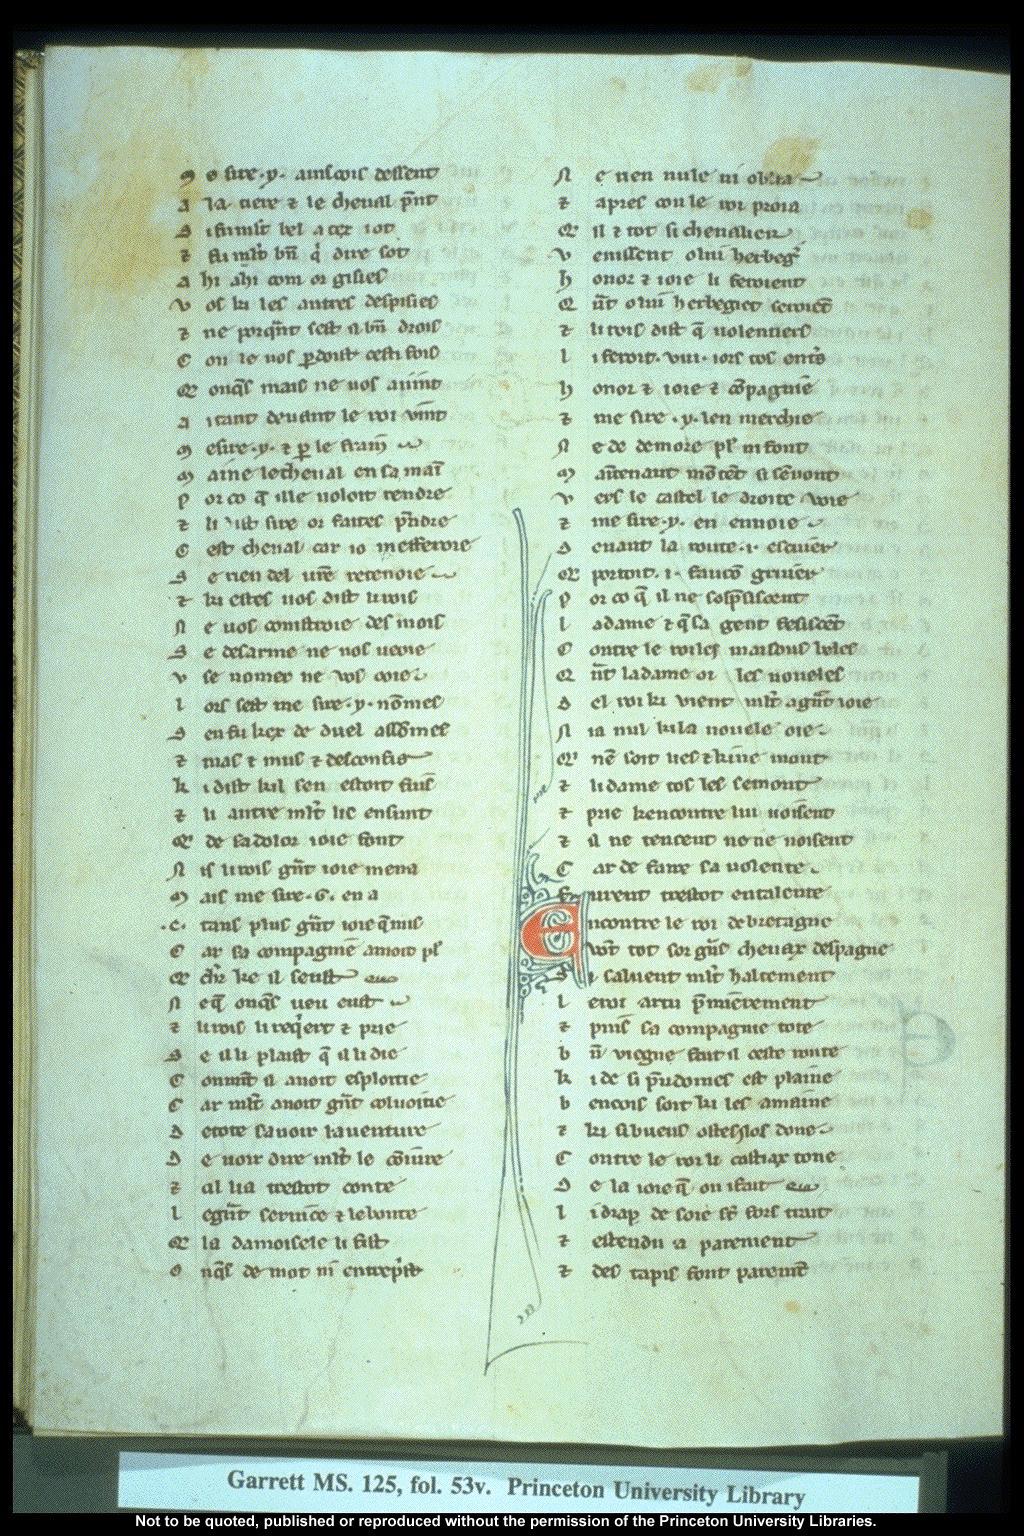 M e sire .y. ainscois dessent
A la tiere ⁊ le cheval p̄nt
S
⁊
A hi ahi com or gisies
V os ki les autres despisies
⁊ ne porqāt sest il bn̄ drois
C on le vos p̲doist cesti fois
Q onq̄s mais ne vos avint
A itant devant le roi vint
M esire .y. ⁊ p̲ le frain
M aine le cheval en sa main
P or co q̄ ille voloit rendre
⁊ li dist sire or faites p̄ndre
C est cheval car io mesferoie
S e rien del vr̄e retenoie
⁊ ki estes vos dist li rois
N e vos conistroie des mois
S e desarme ne vos veoie
V se nomer ne vos ooie
L ors sest me sire .y. nōmes
S en fu kex de duel assōmes
⁊ mas ⁊ mus ⁊ desconfis
K i dist kil sen estoit fuis
⁊ li autre ml̄t lie en sunt
Q de sa dolor ioie font
N is li rois gn̄t ioie mena
M ais me sire .G. en a
.C. tans plus gn̄t ioie q̄ nus
C ar sa compagnie amoit pl'
Q
N eq̄ onq̄s veu eust
⁊ li rois li req'ert ⁊ prie
S e il li plaist q̄ il li die
C oment il avoit esploitie
C ar ml̄t avoit gn̄t covoitie
D e tote savoir laventure
D e voir dire ml̄t le coniure
⁊ al lia trestot conte
L e gn̄t service ⁊ le bonte
Q la damoisele li fist
O nq̄s de mot ni entrep'st
N e rien nule ni oblia
⁊ apres con le roi proia
Q il ⁊ tot si chevalier
V enissent o lui herbeg'
H onor ⁊ ioie li feroient
Q ant o lui herbegie seroient
⁊ li rois dist q̄ volentiers
L i feroit .viii. iors tos entirs
H onor ⁊ ioie ⁊ cōpagnie
⁊ me sire .y. len merchie
N e de demore pl' ni font
M aītenant mōtēt si sen vont
V ers le castel le droite voie
⁊ me sire .y. en envoie
D evant la route .i. escuier
Q portoit .i. faucō gruier
P or co q̄ il ne
L a dame ⁊ q̄ sa gent
C ontre le roi les maisons beles
Q n̄t la dame ot les noveles
D el roi ki vient ml̄t a gn̄t ioie
N ia nul ki la novele oie
Q nē soit lies ⁊ kine mont
⁊ li dame tos les semont
⁊ prie kencontre lui voisent
⁊ il ne tencent ne ne noisent
C ar de faire sa volente
F urent trestot entalente
E ncontre le roi de bretagne
V ōt tot sor gn̄s chevax despagne
S i saluent ml̄t haltement
L e roi artu p̄mierement
⁊ puis sa compagnie tote
B n̄ viegne fait il ceste route
K i de si p̄udomes est plaine
B eneois soit ki les amaine
⁊ ki si buens ostes lor done
C ontre le roi li castiax tone
D e la ioie q̄ on i fait
L i drap de soie sūt fors trait
⁊ estendu a parement
⁊ des tapis font pavemēt
Garrett MS. 125, fol. 53v. Princeton University Library
Not to be quoted, published or reproduced without the permission of the Princeton University Libraries.